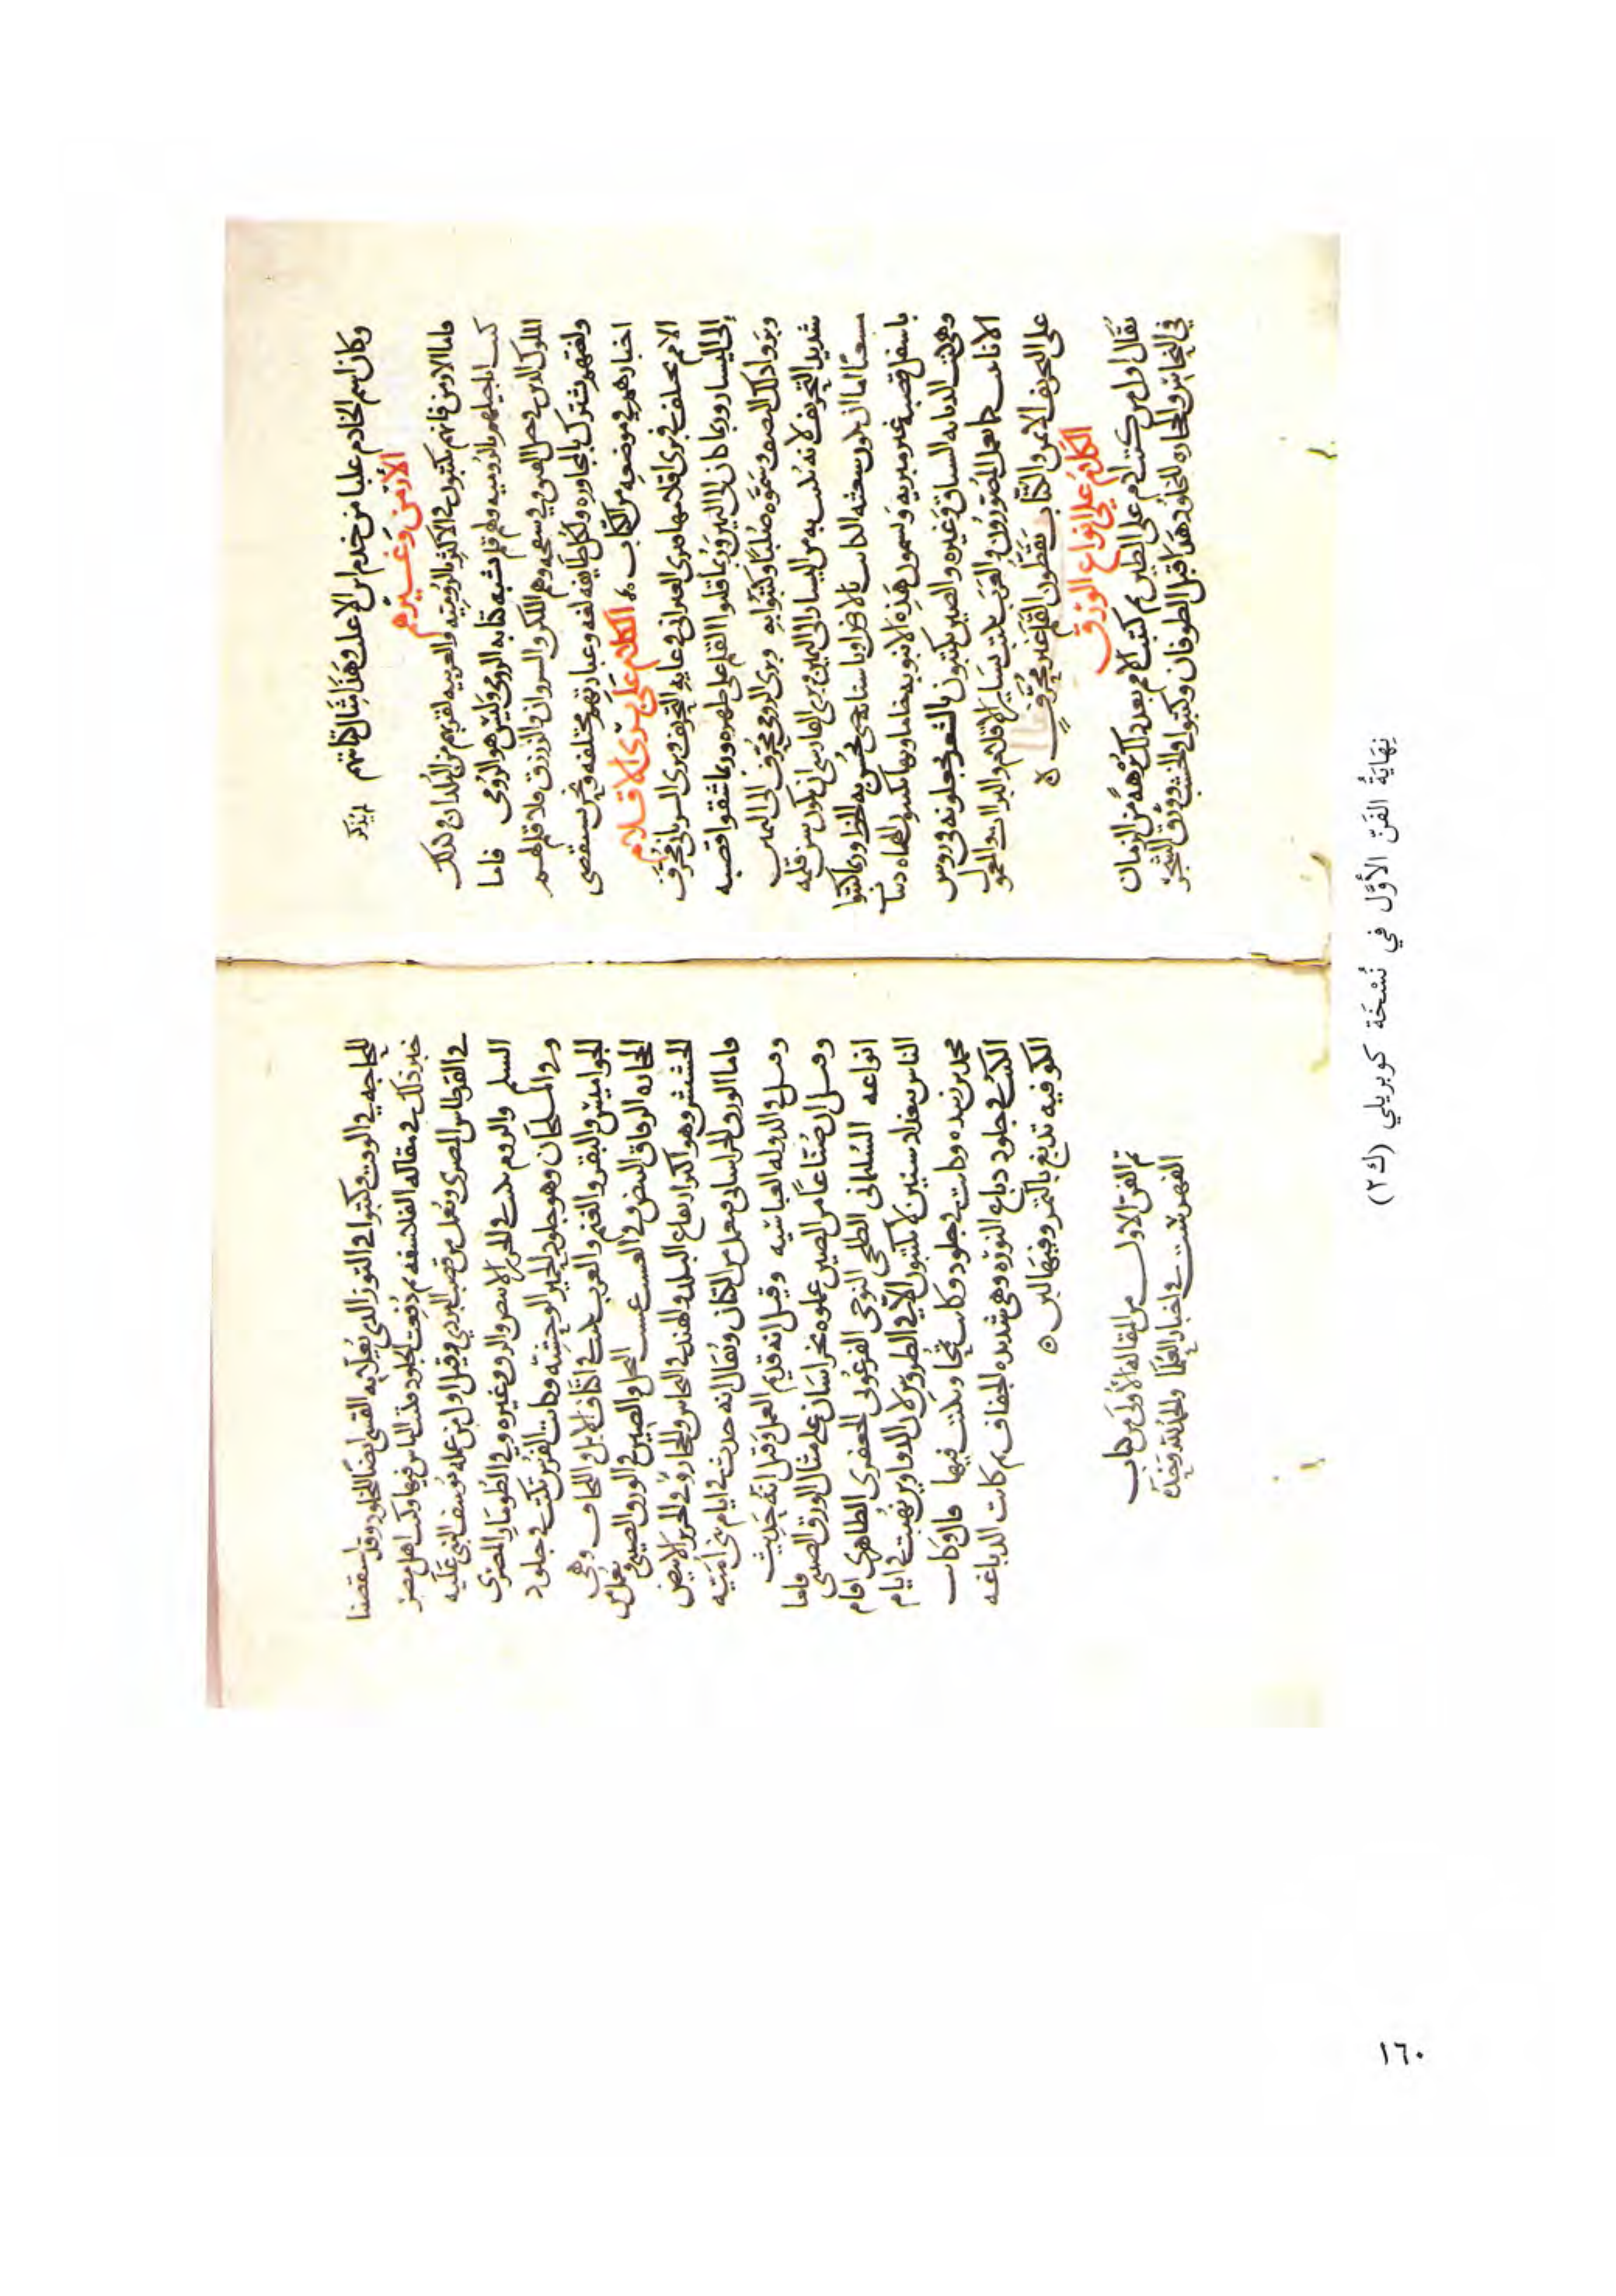 وكان اسم الخادم عليا من خدم ابن الاعلى وهذا مثال كتابتهم
الأرمن وغيرهم
فاما الارمن فانهم يكتبون في الاكثر بالرومية والعربية لقربهم من البلدان وذلك
كتب اناجيلهم بالرومية وهو قلم يشبه كتابة الرومي وليس هو الرومي فاما
الملوك الذين في جبل القبق وسفحه وهم اللكز والسروان والزرزق فلا قلم لهم
ولغتهم تشترك بالمجاورة ولكل طايفة لغة وعبارتهم مختلفة ونحن نستقصي
اخبارهم في موضعه من الكتاب الكلام على بري الاقلام
الامم تختلف في بري اقلامها فبري العبراني في غاية التحريف وبري السرياني محرف
إلى اليسار وربما كان الى اليمين وربما قلبوا القلم على ظهره وربما شقوا قصبة
وبروا ذلك النصف وسموه صلبا وكتبوا به وبري الرومي محرف الى اليمين
شديد التحريف لانه يكتب به من اليسار الى اليمين وبري الفارسي ان يكون سن قلمه
مشعثا اما ان يكون شعثه الكاتب بالارض او باسنانه حتى يحسن به الخط وربما كتبوا
باسفل قصبة غير مبرية ويسمون هذه الانبوبة خاما وبها يكتبون
وهي كتب الديانة الساق وغيره والصين يكتبون بالشعر يجعلونه في روس
الانابيب كما يعمل المصورون والعرب تكتب بساير الاقلام والبرايات والمعول
على التحريف الايمن والكتاب يقطون القلم غير محرف
الكلام على انواع الورق
يقال اول من كتب ادم على الطين ثم كتبت الامم بعد ذلك برهة من الزمان
في النحاس والحجارة للخلود هذا قبل الطوفان وكتبوا في الخشب وورق الشجر
للحاجة في الوقت وكتبوا في التوز الذي يعلى به القسي ايضا للخلود وقد استقصينا
خبر ذلك في مقالة الفلاسفة ثم دبغت الجلود فكتب الناس فيها وكتب اهل مصر
في القرطاس المصري ويعمل من قصب البردي وقيل اول من عمله يوسف النبي عليه
السلم والروم تكتب في الحرير الابيض والرق وغيره وفي الطومار المصري
وفي الفلحان وهو جلود الحمير الوحشية وكانت الفرس تكتب في جلود
الجواميس والبقر والغنم والعرب تكتب في اكتاف الابل واللخاف وهي
الحجارة الرقاق البيض وفي العسب عسب النخل والصين في الورق الصيني ويعمل من
الحشيش وهو اكثر ارتفاع البلد والهند في النحاس والحجارة وفي الحرير الابيض
فاما الورق الخراساني فيعمل من الكتان ويقال انه حدث في ايام بني امية
وقيل في الدولة العباسية وقيل انه قديم العمل وقيل انه حديث
وقيل ان صناعا من الصين عملوه بخراسان على مثال الورق الصيني فاما
انواعه السليماني الطلحي النوحي الفرعوني الجعفري الطاهري اقام
الناس ببغداد سنين لا يكتبون الا في الطروس لان الدواوين نهبت في ايام
محمد بن زبيدة وكانت في جلود فكانت تمحا ويكتب فيها قال وكانت
الكتب في جلود دباغ النورة وهي شديدة الجفاف ثم كانت الدباغة
الكوفية تدبغ بالتمر وفيها لين
تم الفن الاول من المقالة الأولى من كتاب
الفهرست في اخبار العلما ولله الحمد
نِهَايَةُ الفَنّ الأوَّل في نُسْخَة كوبريلي (ك٢)
١٦٠